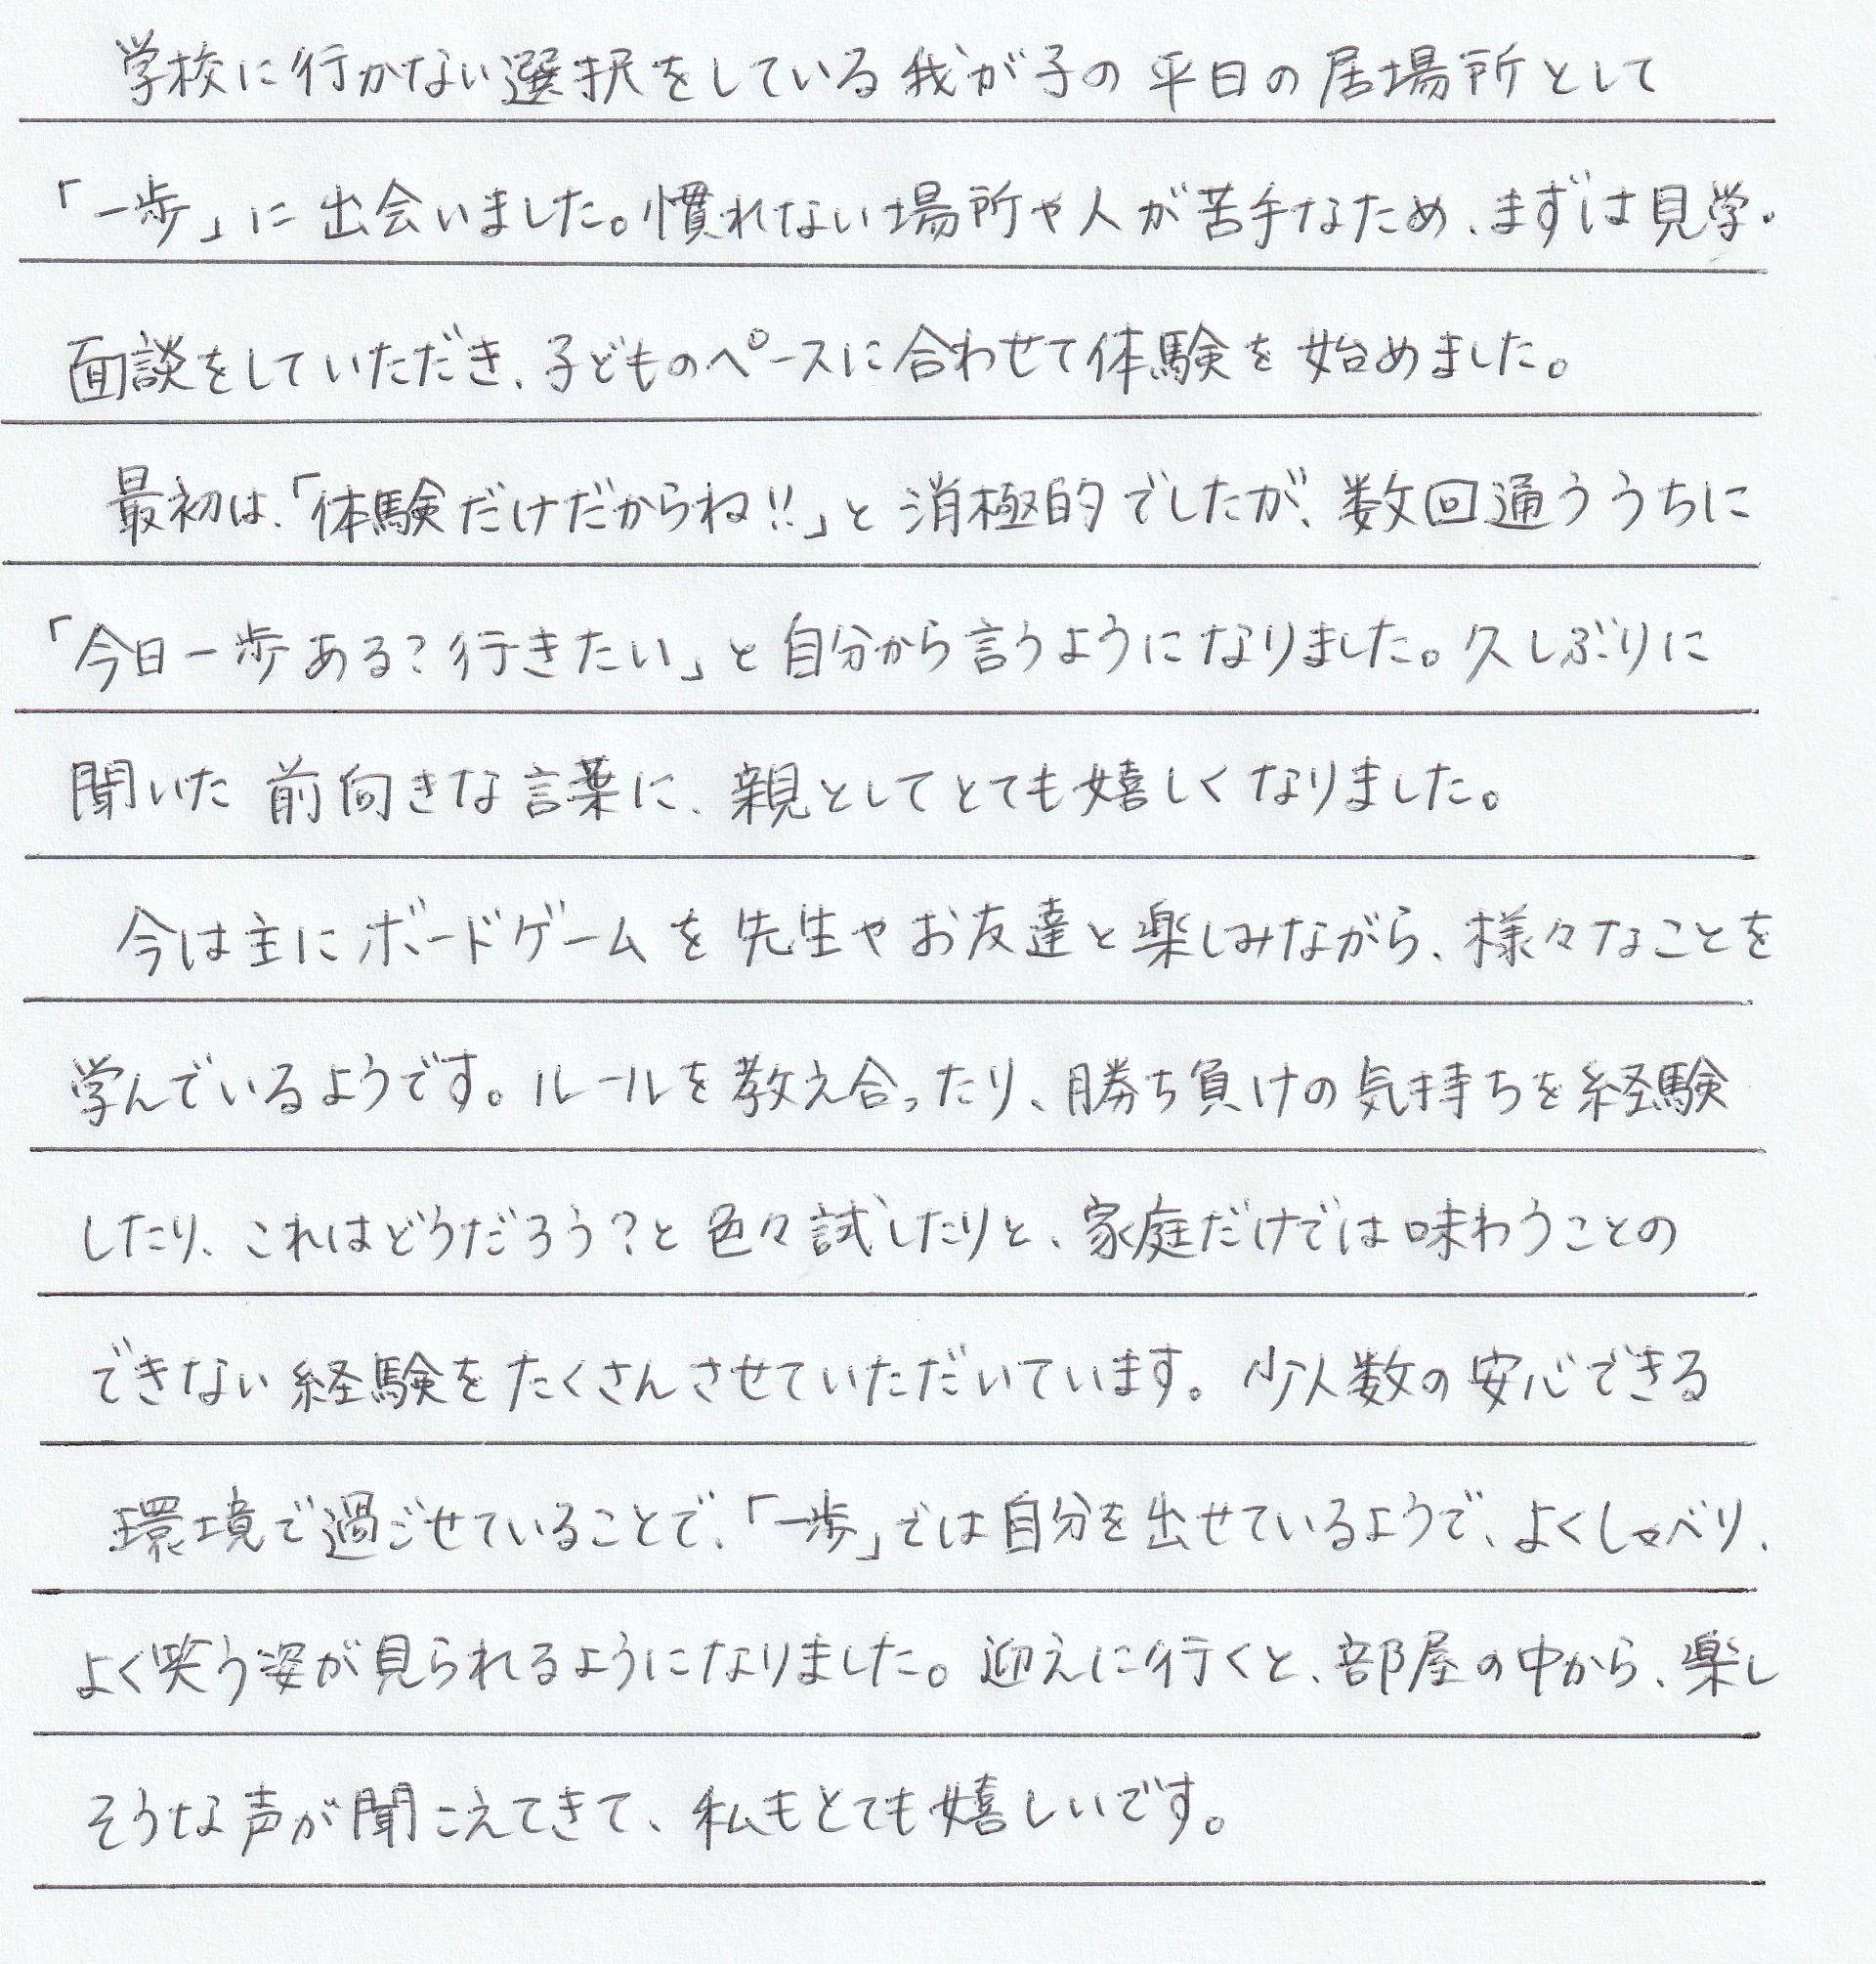 学校に行かない選択をしている我が子の平日の居場所として
「一歩」に出会いました。慣れない場所や人が苦手なため、まずは見学・
面談をしていただき、子どものペースに合わせて体験を始めました。
最初は、「体験だけだからね!!」と消極的でしたが、数回通ううちに
「今日一歩ある？行きたい」と自分から言うようになりました。久しぶりに
聞いた前向きな言葉に、親としてとても嬉しくなりました。
今は主にボードゲームを先生やお友達と楽しみながら、様々なことを
学んでいるようです。ルールを教え合ったり、勝ち負けの気持ちを経験
したり、これはどうだろう？と色々試したりと、家庭だけでは味わうことの
できない経験をたくさんさせていただいています。少人数の安心できる
環境で過ごせていることで、「一歩」では自分を出せているようで、よくしゃべり、
よく笑う姿が見られるようになりました。迎えに行くと、部屋の中から、楽し
そうな声が聞こえてきて、私もとても嬉しいです。